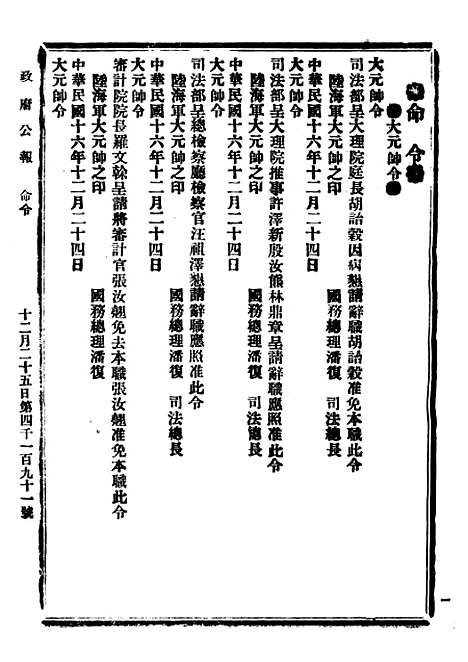 命令
大元帥令
大元帥令
司法部呈大理院庭長胡詒穀因病懇請辭職胡詒穀准免本職此令
陸海軍大元帥之印 國務總理潘復 司法總長
中華民國十六年十二月二十四日
大元帥令
司法部呈大理院推事許澤新殷汝熊林鼎章呈請辭職應照准此令
陸海軍大元帥之印 國務總理潘復 司法總長
中華民國十六年十二月二十四日
大元帥令
司法部呈總檢察廳檢察官汪祖澤懇請辭職應照准此令
陸海軍大元帥之印 國務總理潘復 司法總長
中華民國十六年十二月二十四日
大元帥令
審計院院長羅文榦呈請將審計官張汝翹免去本職張汝翹准免本職此令
陸海軍大元帥之印 國務總理潘復
中華民國十六年十二月二十四日
大元帥令
政府公報 命令 十二月二十五日第四千一百九十一號
一